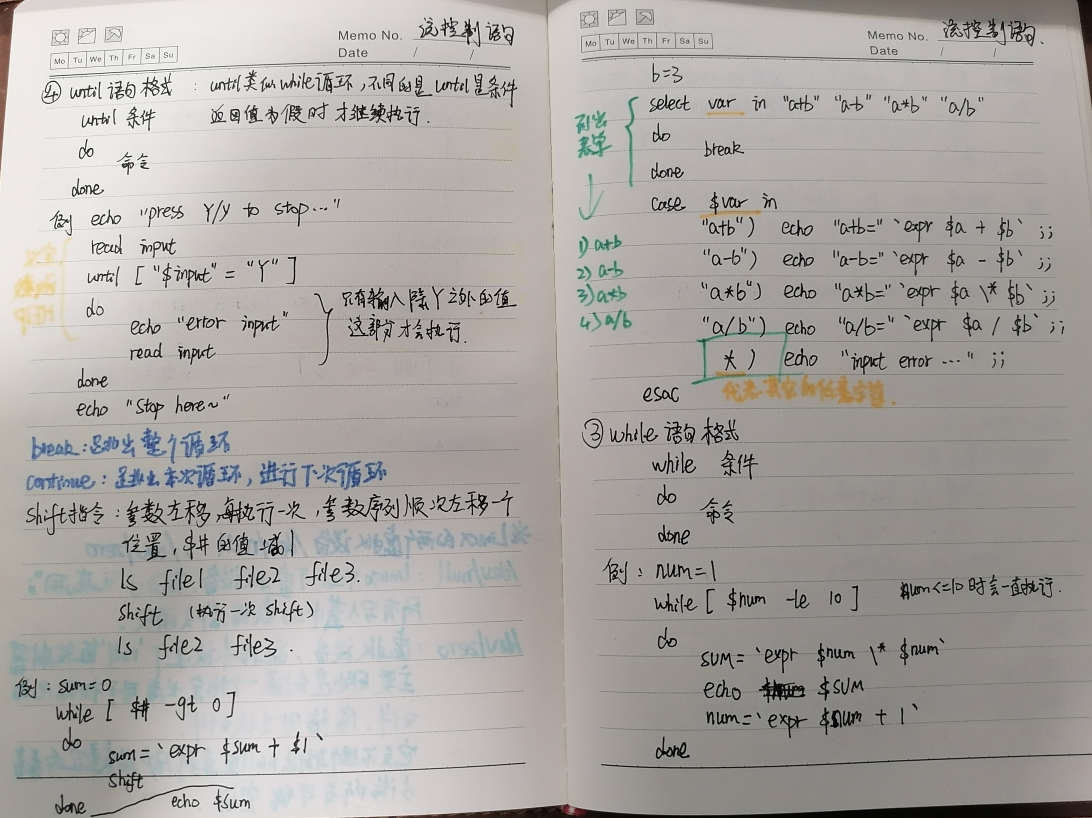 Memo No. 流控制语句
Mo Tu We Th Fr Sa Su
Date / /
④ until语句格式 : until类似while循环,不同的是until是条件
until 条件 返回值为假时才继续执行.
do
命令
done
例 echo "press Y/y to stop..."
read input
until [ "$input" = "Y" ]
do
echo "error input"
read input
只有输入除Y之外的值
这部分才会执行.
done
echo "Stop here~"
break:跳出整个循环
continue:跳出本次循环,进行下次循环
Shift指令:参数左移,每执行一次,参数序列顺次左移一个
位置,$#的值减1
ls file1 file2 file3.
Shift (执行一次shift)
ls file2 file3.
例:sum=0
while [ $# -gt 0]
do
sum=`expr $sum + $1`
Shift
done echo $sum
Memo No. 流控制语句.
Mo Tu We Th Fr Sa Su
Date / /
b=3
select var in "a+b" "a-b" "a*b" "a/b"
do
break
done
列出
菜单
case $var in
"a+b") echo "a+b=" `expr $a + $b` ;;
"a-b") echo "a-b=" `expr $a - $b` ;;
"a*b") echo "a*b=" `expr $a \* $b` ;;
"a/b") echo "a/b=" `expr $a / $b` ;;
*) echo "input error ..." ;;
1) a+b
2) a-b
3) a*b
4) a/b
esac 代表其它的任意字符.
③ while语句格式
while 条件
do
命令
done
例: num=1
while [ $num -le 10 ] num<=10时会一直执行.
do
sum=`expr $num \* $num`
echo $sum
num=`expr $num + 1`
done